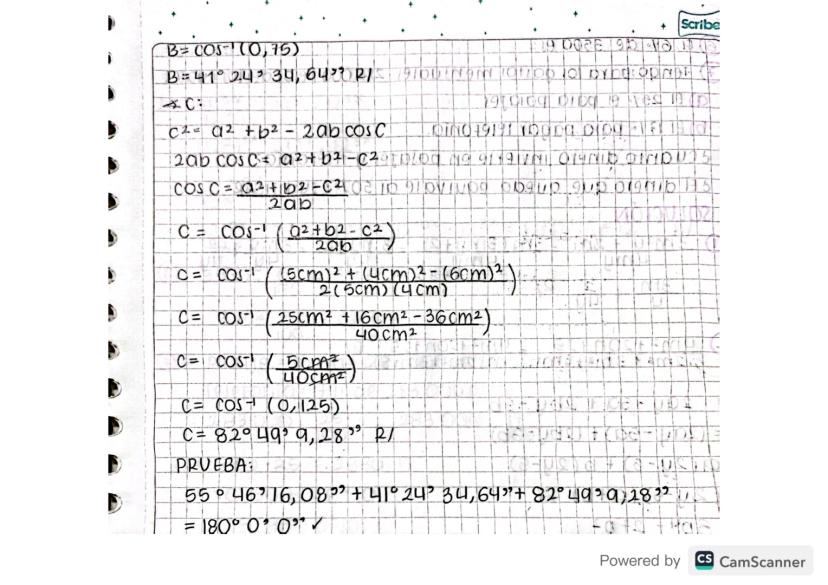 Scribe
B= COS⁻¹ (0,75)
B= 41° 24' 34,64'' R/
* C:
c² = a² + b² - 2ab cos C
2ab cos C = a² + b² - c²
cos C = a² + b² - c²
2ab
C = cos⁻¹ ( a² + b² - c² )
2ab
C = cos⁻¹ ( (5cm)² + (4cm)² - (6cm)² )
2(5cm)(4cm)
C = cos⁻¹ ( 25cm² + 16cm² - 36cm² )
40cm²
C = cos⁻¹ ( 5cm² )
40cm²
C = cos⁻¹ (0,125)
C = 82° 49' 9,28'' R/
PRUEBA:
55° 46' 16,08'' + 41° 24' 34,64'' + 82° 49' 9,28''
= 180° 0' 0'' ✓
Powered by CS CamScanner